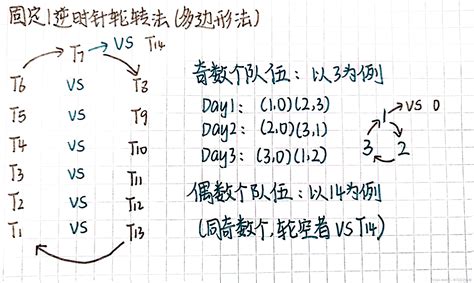 固定1逆时针轮转法(多边形法)
T7 → VS T14
T6 VS T8
T5 VS T9
T4 VS T10
T3 VS T11
T2 VS T12
T1 VS T13
奇数个队伍：以3为例
Day1: (1,0)(2,3)
Day2: (2,0)(3,1)
Day3: (3,0)(1,2)
1 → VS 0
3 2
偶数个队伍：以14为例
(同奇数个,轮空者VS T14)